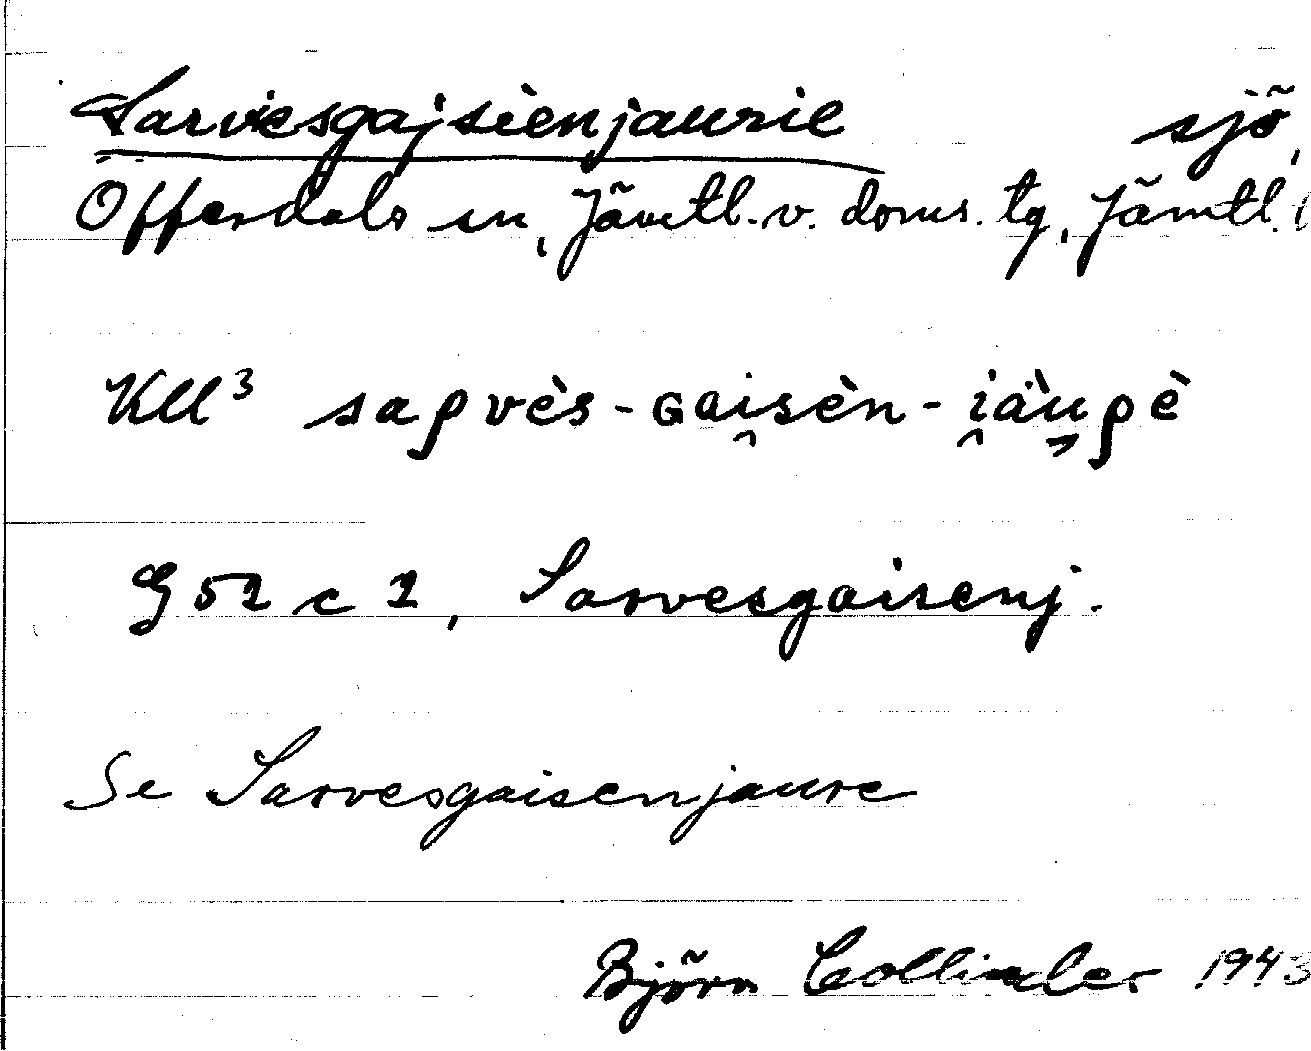 Sarviesgajsienjaurie sjö,
Offerdals sn, Jämtl. v. doms. tg, Jämtl. l
KU³ saρvès-ɢai̯sèn-i̯äu̯ρè
G 52 c 2, Sarvesgaisenj.
Se Sarvesgaisenjaure
Björn Collinder 1943